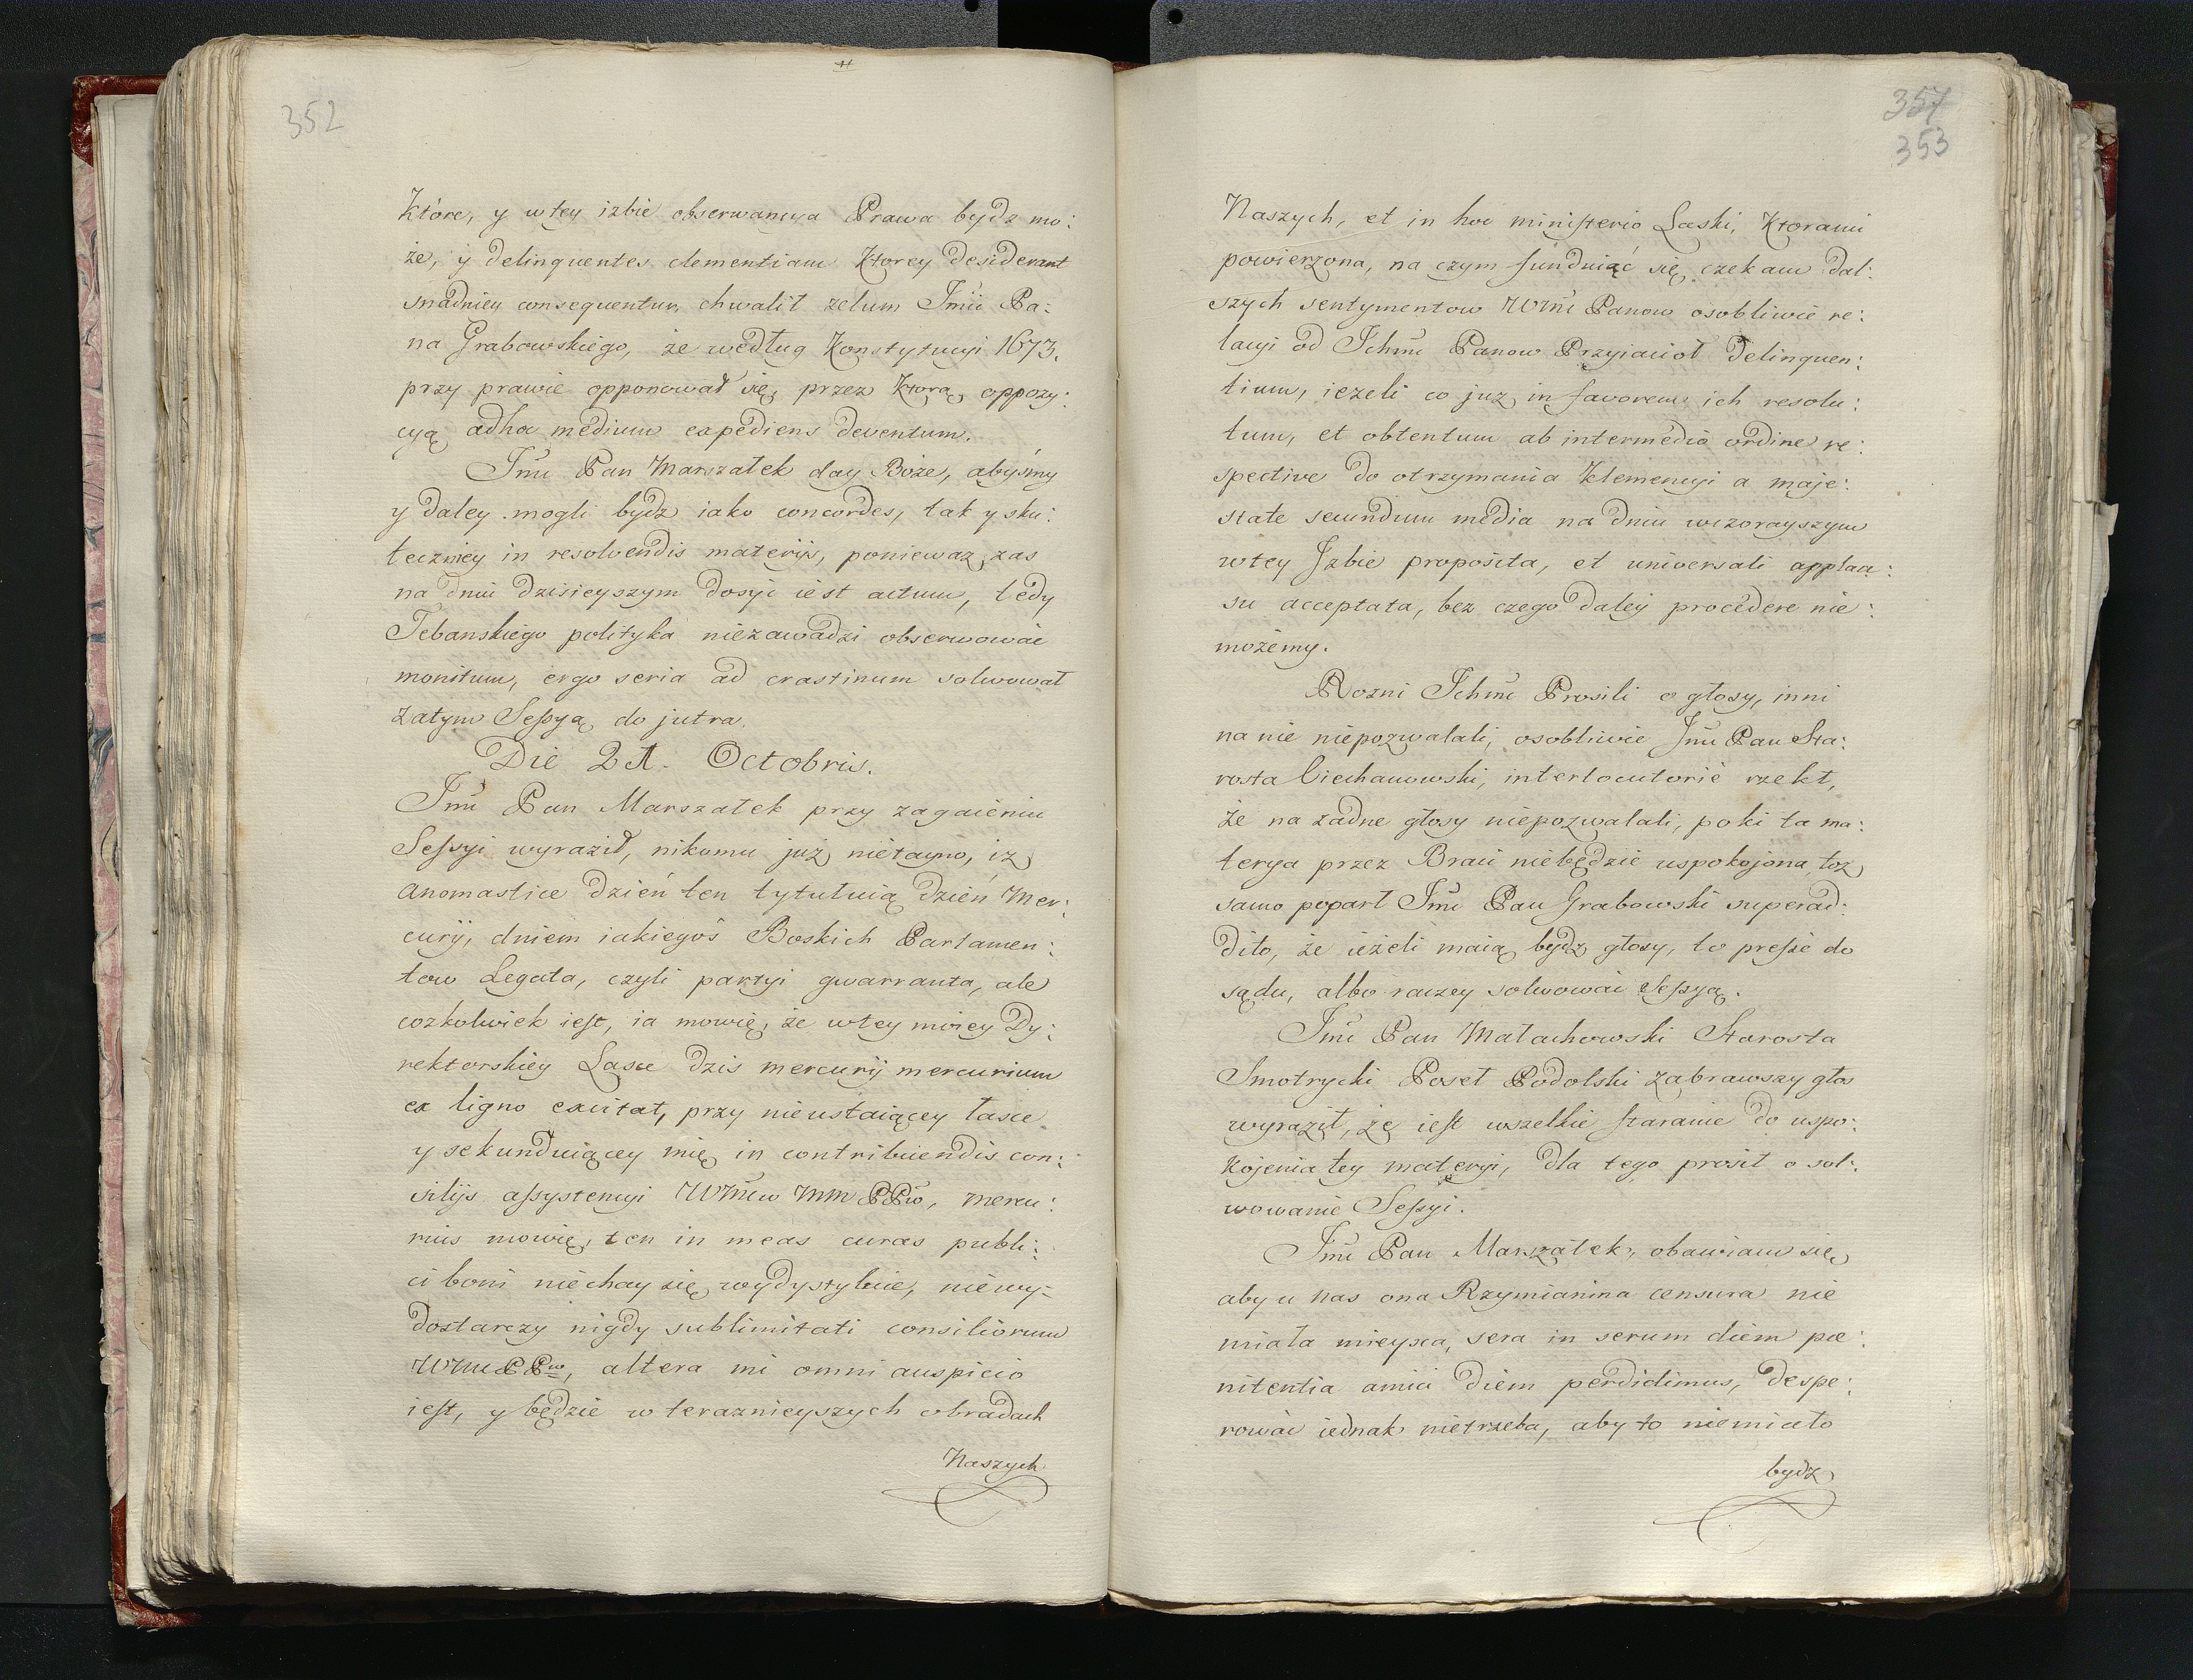 352
Które, y wtey izbie obserwancya Prawa bydz mo:
że, y delinquentes clementiam Ktorey desiderant
snadniey consequentur, chwalił zelum Jmći Pa:
na Grabowskiego, że według Konstytucyi 1673.
przy prawie opponował się, przez Ktorą oppozy:
cyą adhoc medium expediens deventum.
Jmć Pan Marszałek day Boże, abyśmy
y daley mogli bydz iako concordes, tak y sku:
teczniey in resolvendis materijs, ponieważ zas
na dniu dzisieyszym dosyć iest actum, tedy
Tebanskiego polityka niezawadzi obserwować
monitum, ergo seria ad crastinum solwował
zatym Sessyą do jutra.
Die 21. Octobris.
Jmć Pan Marszałek przy zagaieniu
Sessyi wyraził, nikomu już nietayno, iż
anomastice dzień ten tytułuią dzień Mer:
curij, dniem iakiegoś Boskich Parlamen:
tow Legata, czyli partyi gwarranta, ale
cozkolwiek iest, ia mowię, że wtey moiey Dy:
rektorskiey Lasce dzis mercurij mercurium
ex ligno excitat, przy nieustaiącey łasce
y sekunduiącey mię in contribuendis con:
silijs assystencyi WMćw MM PPów, mercu:
rius mowię, ten in meas curas publi:
ci boni niechay się wydystyluie, niewy:
dostarczy nigdy sublimitati consiliorum
WMć PPw, altera mi omni auspicio
iest, y będzie w teraznieyszych obradach
Naszych
357
353
Naszych, et in hoc ministerio Laski, Ktorami
powierzona, na czym funduiąć się czekam dal:
szych sentymentow WMć Panow osobliwie re:
lacyi od Jchmć Panow Przyiacioł delinquen:
tium, ieżeli co już in favorem ich resolu:
tum, et obtentum ab intermedio ordine re:
spective do otrzymania Klemencyi a maje:
state secundum media na dniu wczorayszym
wtey Jzbie proposita, et universali applau:
su acceptata, bez czego daley procedere nie:
możemy.
Rozni Jchmć Prosili o głosy, inni
na nie niepozwalali, osobliwie Jmć Pan Sta:
rosta Ciechanowski, interlocutorie rzekł,
że na żadne głosy niepozwalali, poki ta ma:
terya przez Braci niebędzie uspokojona, toż
samo poparł Jmć Pan Grabowski superad:
dito, że ieżeli maią bydz głosy, to presse do
sądu, albo raczey solwować Sessyą.
Jmć Pan Małachowski Starosta
Smotrycki Poseł Podolski zabrawszy głos
wyraził, że iest wszelkie staranie do uspo:
kojenia tey materyi, dla tego prosił o sol:
wowanie Sessyi.
Jmć Pan Marszałek, obawiam się
aby u nas ona Rzymianina censura nie
miała mieysca, sera in serum diem pœ:
nitentia amici diem perdidimus, despe:
rować iednak nietrzeba, aby to niemiało
bydz